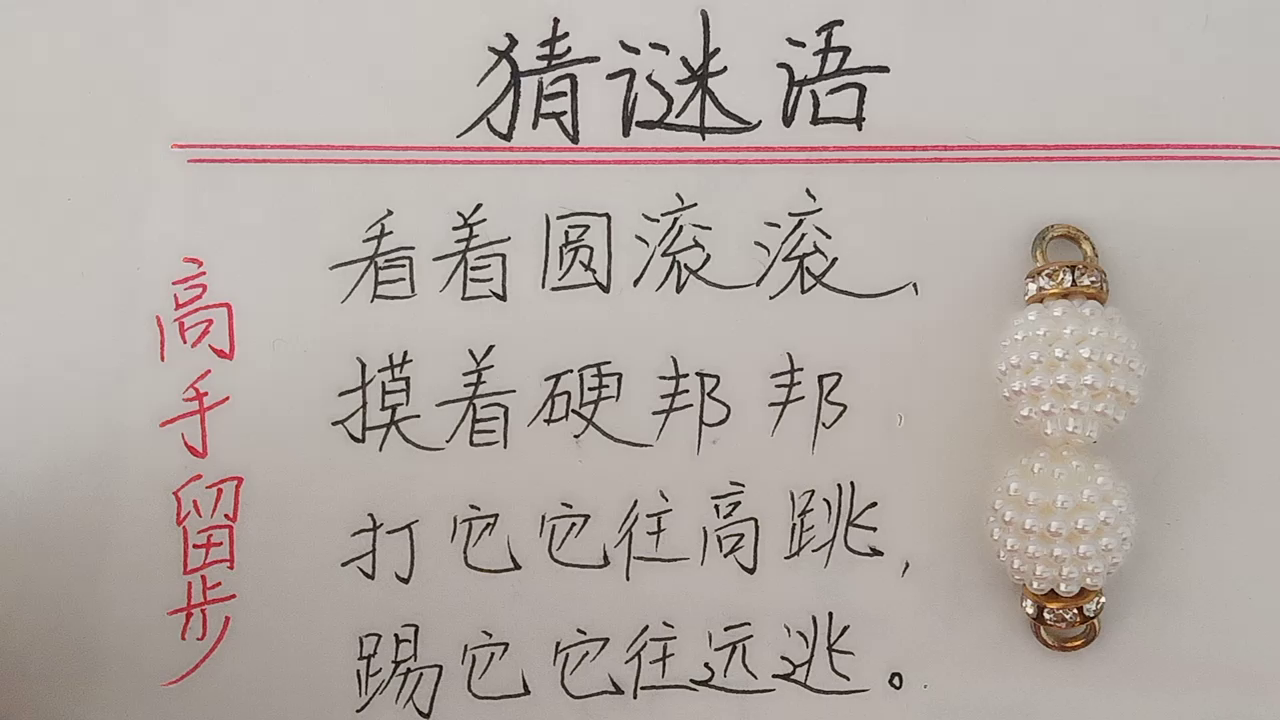 猜谜语
高手留步
看着圆滚滚、
摸着硬邦邦，
打它它往高跳，
踢它它往远逃。